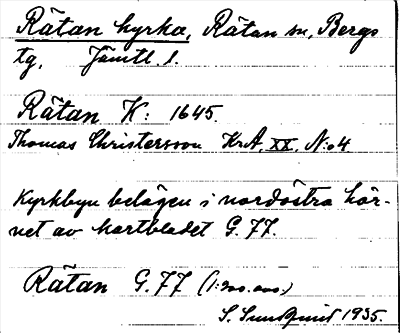 Rätan kyrka, Rätan sn, Bergs
tg, Jämtl. l.
Rätan K: 1645.
Thomas Christersson KrA, XX, N:o 4
Kyrkbyn belägen i nordöstra hör-
net av kartbladet G. 77.
Rätan G. 77 (1:200.000.)
S. Sundquist 1935.